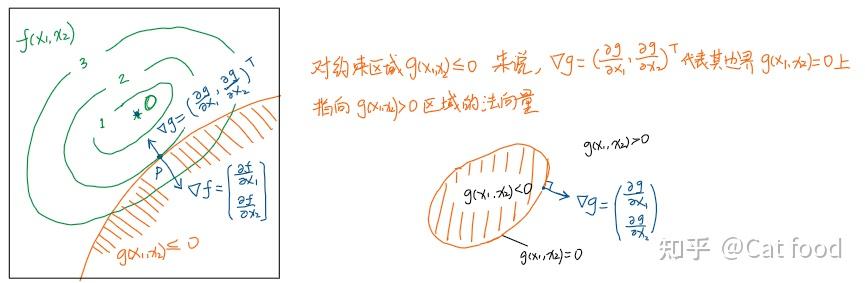 f(x₁,x₂)
3
2
1
0
∇g=(∂g/∂x₁,∂g/∂x₂)ᵀ
P
∇f=(∂f/∂x₁ ∂f/∂x₂)
g(x₁,x₂)≤0
对约束区域g(x₁,x₂)≤0 来说，∇g=(∂g/∂x₁,∂g/∂x₂)ᵀ代表其边界g(x₁,x₂)=0上
指向g(x₁,x₂)>0区域的法向量
g(x₁,x₂)>0
g(x₁,x₂)<0
∇g=(∂g/∂x₁ ∂g/∂x₂)
g(x₁,x₂)=0
知乎 @Cat food